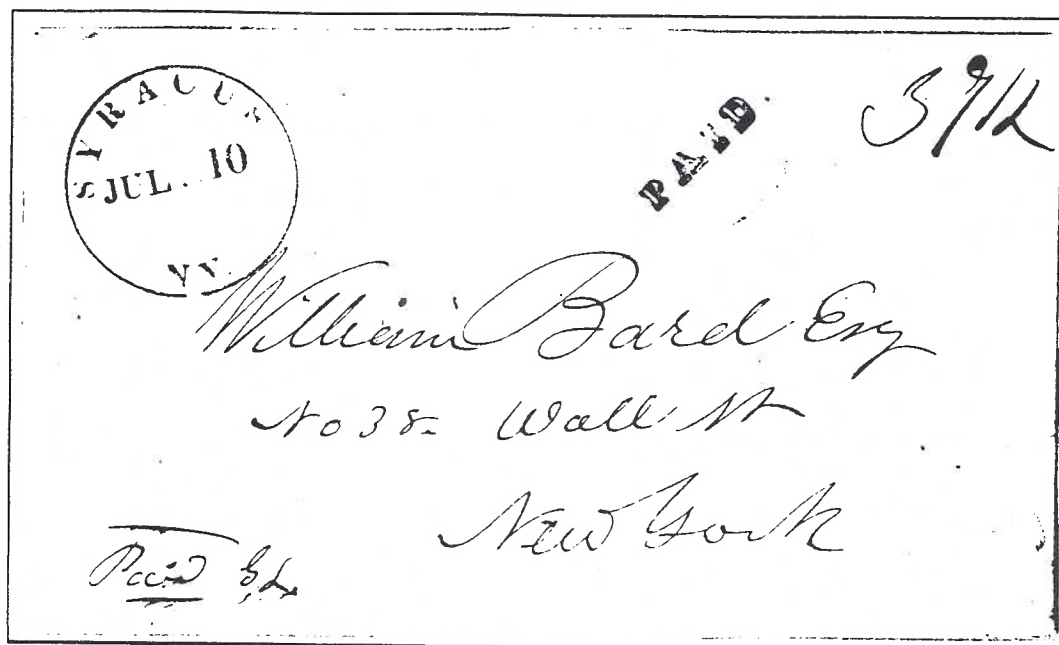 SYRACUS
JUL 10
PAID
William Bard Esq
No 38 Wall St
New York
Paid